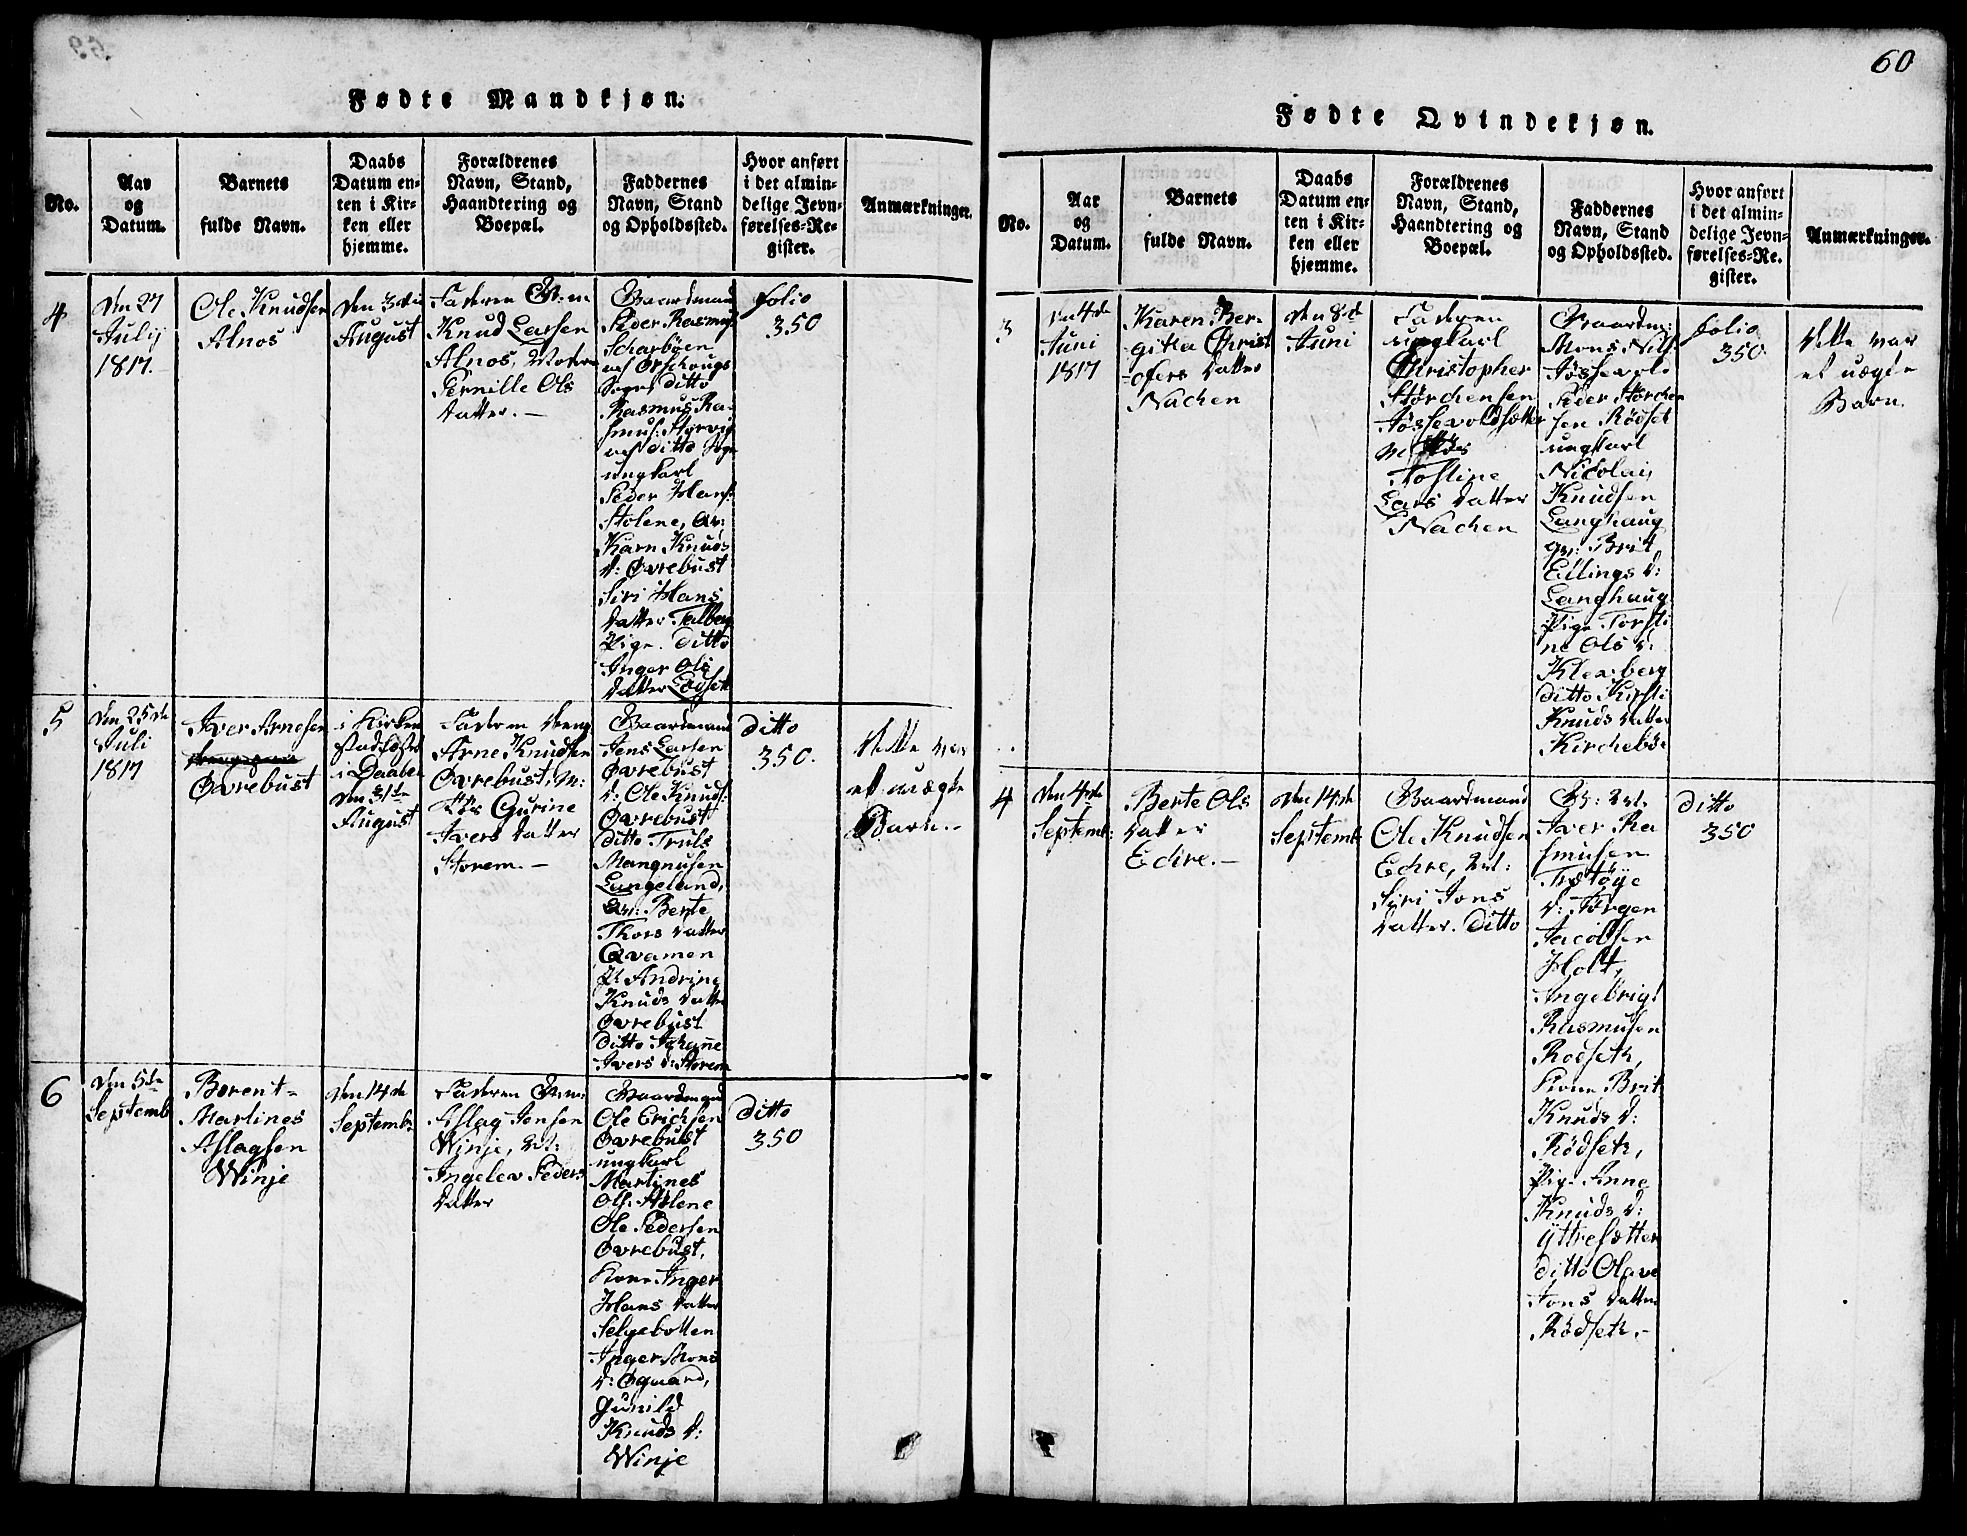 60
Fødte Mandkjøn.
No.
Aar
og
Datum.
Barnets
fulde Navn.
Daabs
Datum en-
ten i Kir-
ken eller
hjemme.
Forældrenes
Navn, Stand,
Haandtering og
Boepæl.
Faddernes
Navn, Stand
og Opholdssted.
Hvor anført
i det almin-
delige Jevn-
førelses-Re-
gister.
Anmærkninger.
4
den 27
Julij
1817.
Ole Knudsen
Alnos
den 3die
August
Faderen
Knud Larsen
Alnos, Moder
Pernille Ols
datter. —
Gaardmand
Peder Rasmus
Scharbøen
af Ørschougs
Sogn ditto
Rasmus Ra-
smus: Storvig
af ditto Sogn
ungkarl
Peder Hans:
Stolene,
Karn Knuds
d: Øvrebust
Siri Hans
datter Talberg
Pige. ditto
Inger Ols
datter
folio
350
5
den 25de
Juli
1817
Iver Arnesen
Øvrebust
i Kirken
stadfæstet
i Daaben
den 31te
August
Faderen dreng
Arne Knudsen
Øvrebust, M:
Pige Gurine
Ivers datter
Storem. —
Gaardmand
Jens Larsen
Øvrebust
d: Ole Knuds:
Øvrebust
ditto Truls
Mangnusen
Langeland,
Qv: Berte
Thors datter
Qvamen
P: Andrine
Knuds datter
Øvrebust
ditto Johanne
Ivers d: Storem
ditto
350.
Dette var
et uægte
Barn. —
6
den 5te
Septemb
Berent-
Martines
Aslagsen
Winje
den 14de
Septemb:
Faderen
Aslag Jensen
Winje, M:
Ingelev Peders
datter
Gaardmand
Ole Erichsen
Øvrebust
ungkarl
Martines
Ols: Stolene
Ole Pedersen
Øvrebust,
Kone Inger
Hans datter
Selgebotten
Inger Mons
d: Øguard,
Gunild
Knuds d:
Winje
ditto
350
Fødte Qvindekjøn.
No.
Aar
og
Datum.
Barnets
fulde Navn.
Daabs
Datum en-
ten i Kir-
ken eller
hjemme.
Forældrenes
Navn, Stand,
Haandtering og
Boepæl.
Faddernes
Navn, Stand
og Opholdssted.
Hvor anført
i det almin-
delige Jevn-
førelses-Re-
gister.
Anmærkninger.
3
den 4de
Juni
1817
Karen Ber-
gitta Christ
-ofers datter
Nachen
den 8de
Juni
Faderen
ungkarl
Christopher
Størchensen
Jøssevoldsætter
Tostine
Lars datter
Nachen
Gaardm:
Mons Nils:
Jøssevold
Peder Størchen
sen Rødset
ungkarl
Nicolai
Knudsen
Langhaug
gv: Brit
Ellings d:
Langhaug
Pige Torsti
ne Ols d:
Kleveberg
ditto Kirsti
Knuds datter
Kirchebøe
folio
350.
Dette var
et uægte
Barn.
4
den 4de
Septemb:
Berte Ols
datter
Echre. —
den 14de
Septemb
Gaardmand
Ole Knudsen
Echre, M:
Siri Jons
datter. ditto
Iver Ra
smusen
Trætøye
d: Jørgen
Jacobsen
Holt,
Ingebrigt
Rasmusen
Rodseth,
Kone Brit
Knuds d:
Rødseth,
Pige Anne
Knuds d:
Yttresætter
ditto Olave
Jons datter
Rødseth. —
ditto
350